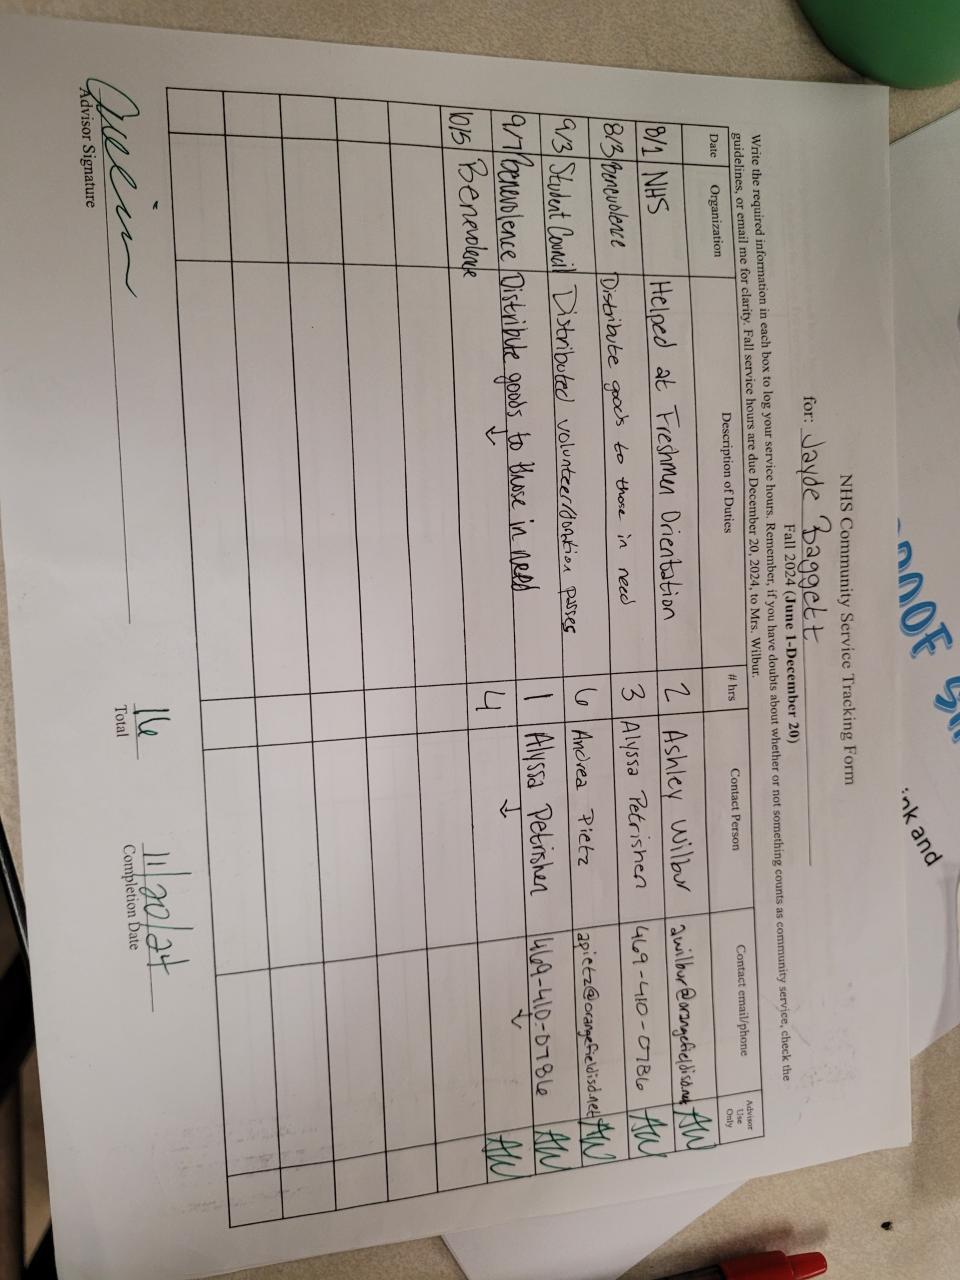 NHS Community Service Tracking Form
for: Jayde Baggett
Fall 2024 (June 1-December 20)
Write the required information in each box to log your service hours. Remember, if you have doubts about whether or not something counts as community service, check the
guidelines, or email me for clarity. Fall service hours are due December 20, 2024, to Mrs. Wilbur.
Date Organization Description of Duties # hrs Contact Person Contact email/phone Advisor Use Only
8/1 NHS Helped at Freshmen Orientation 2 Ashley Wilbur awilbur@orangefieldisd.net AW
8/3 Benevolence Distribute goods to those in need 3 Alyssa Petrishen 469-410-0786 AW
9/3 Student Council Distributed volunteer/donation passes 6 Andrea Pietz apietz@orangefieldisd.net AW
9/7 Benevolence Distribute goods to those in need 1 Alyssa Petrishen 469-410-0786 AW
10/5 Benevolence ↓ 4 ↓ ↓ AW
Advisor Signature
16 Total
11/20/24 Completion Date
ink and